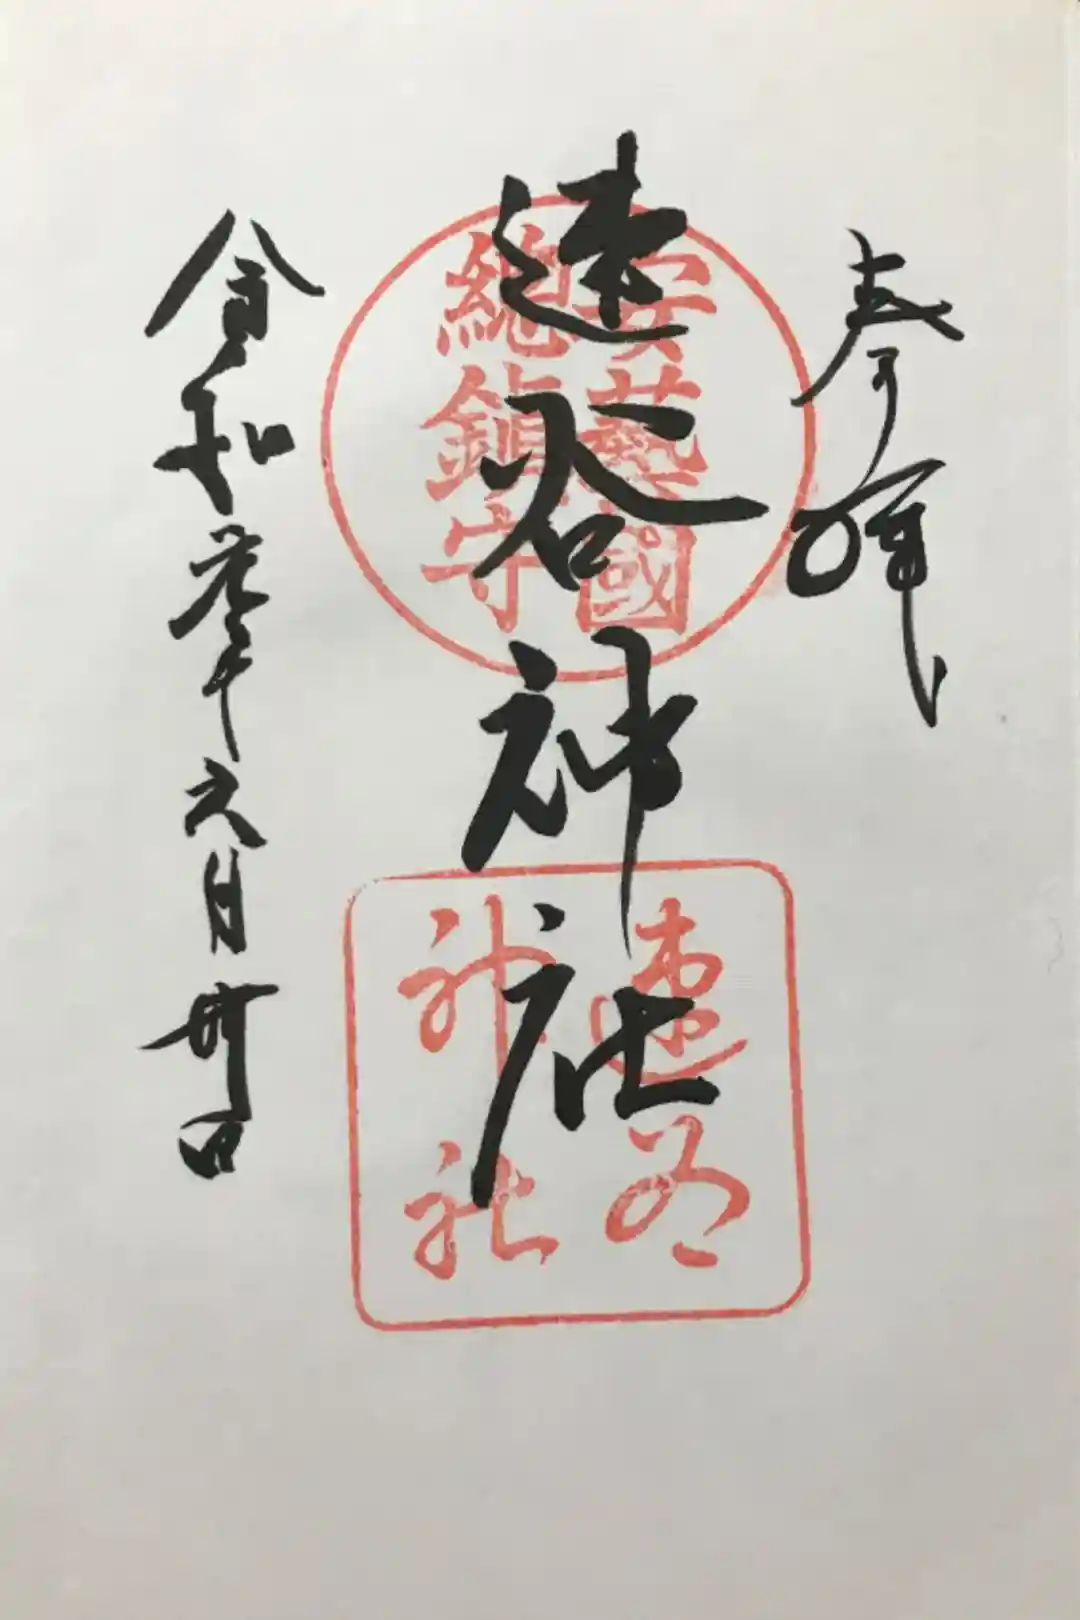 奉拝
速谷神社
安藝國
總鎮守
速谷
神社
令和 年六月卅日